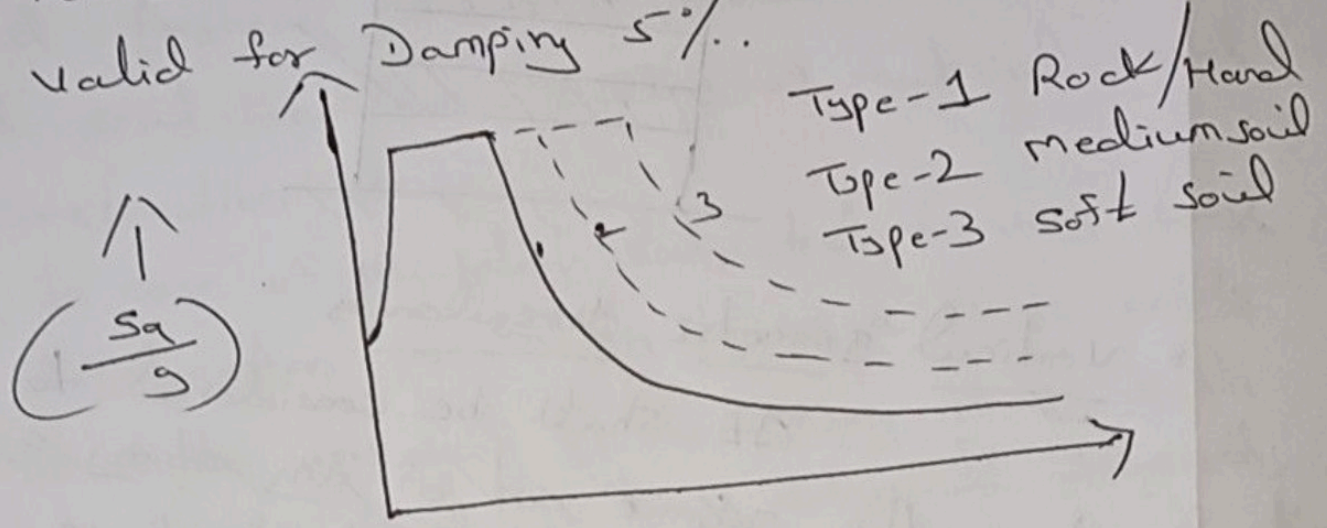 Valid for Damping 5%..
Type-1 Rock/Hard
Type-2 medium soil
Type-3 soft soil
Sa
g
1
2
3